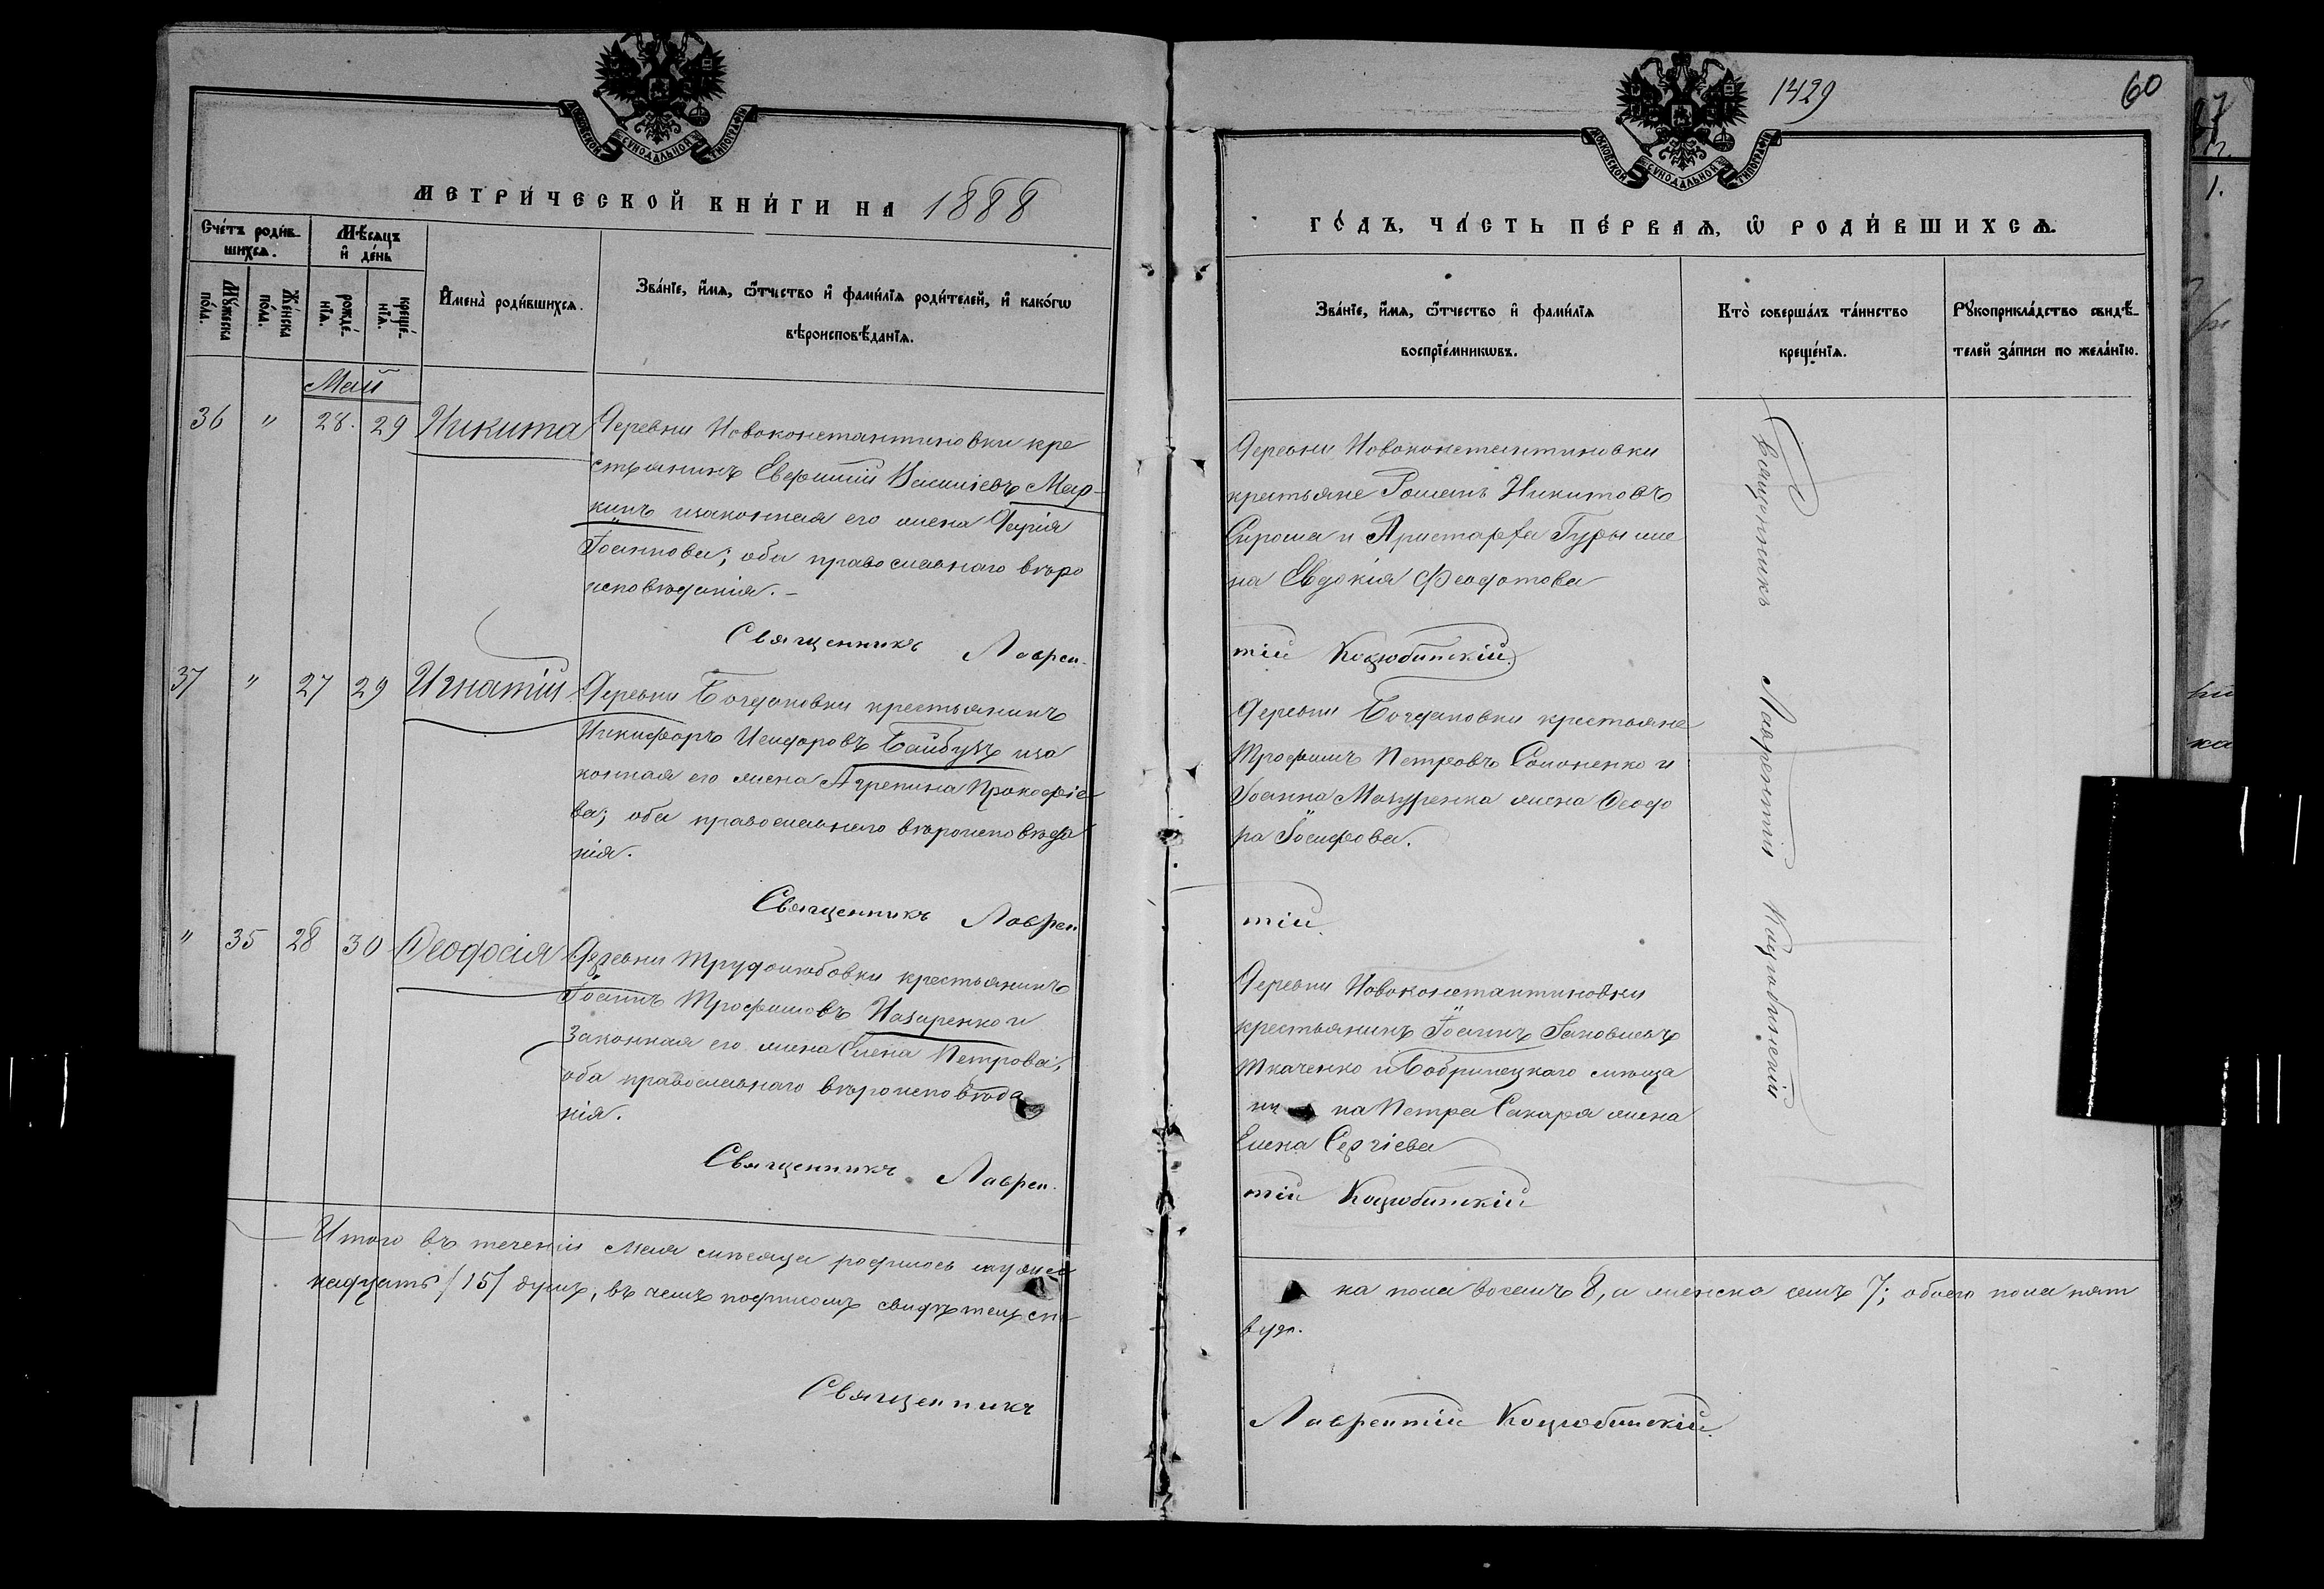 МОСКОВСКОЙ СѴНОДАЛЬНОЙ ТИПОГРАФІИ
МЕТРИ́ЧЕСКОЙ КНИ́ГИ НА 1888
Сче́тъ роди́в-
шихсѧ.
Мѣ́сяцъ
и҆ де́нь
Мꙋ́жеска
по́ла.
Же́нска
по́ла.
рожде́-
нїѧ.
креще́-
нїѧ.
И҆мена̀ роди́вшихсѧ.
Зва́нїе, и҆́мѧ, ѻ҆́тчество и҆ фами́лїѧ роди́телей, и҆ како́гѡ
вѣроисповѣ́данїѧ.
Май
36 " 28. 29 Никита
Деревни Новоконстантиновки кре
стьянинъ Евфимій Василіевъ Мар-
кинъ изаконная его жена Дарія
Іоаннова; оба православнаго вѣро
исповѣданія. –
Священникъ Лаврен-
37 " 27 29 Игнатій
Деревни Богдановки крестьянинъ
Никифоръ Исидоровъ Байбузъ иза
конная его жена Агрепина Прокофіе
ва; оба православнаго вѣроисповѣда
нія.
Священникъ Лаврен
" 35 28 30 Ѳеодосія
Деревни Трудолюбовки крестьянинъ
Іоаннъ Трофимовъ Назаренко и
законная его жена Елена Петрова;
оба православнаго вѣроисповѣда
нія.
Священникъ Лаврен-
Итого въ теченіи Мая мѣсяца родилось мужес
надцать /15/ душъ, въ чемъ подписомъ свидѣтельст
Священникъ
1429
60
МОСКОВСКОЙ СѴНОДАЛЬНОЙ ТИПОГРАФІИ
ГО́ДЪ, ЧА́СТЬ ПЕ́РВАѦ, Ѡ҆ РОДИ́ВШИХСѦ.
Зва́нїе, и҆́мѧ, ѻ҆́тчество и҆ фами́лїѧ
воспрїе́мникѡвъ.
Кто̀ соверша́лъ та́инство
креще́нїѧ.
Рꙋкоприкла́дство свидѣ́-
телей за́писи по жела́нїю.
Деревни Новоконстантиновки
крестьяне Романъ Никитовъ
Сирота и Аристарха Гуры же
на Евдокія Феодотова
тій Коцюбинскій
Деревни Богдановки крестьяне
Трофимъ Петровъ Соломенко и
Іоанна Мазуренка жена Ѳеодо
ра Іосифова.
тій
Деревни Новоконстантиновки
крестьянинъ Іоаннъ Іаковлевъ
Ткаченко и Бобринецкаго мѣща
ни на Петра Сахара жена
Елена Сергіева
тій Коцюбинскій
Священникъ Лаврентій Коцюбинскій
ка пола восемь 8, а женска семь 7; обоего пола пят
вую.
Лаврентій Коцюбинскій.